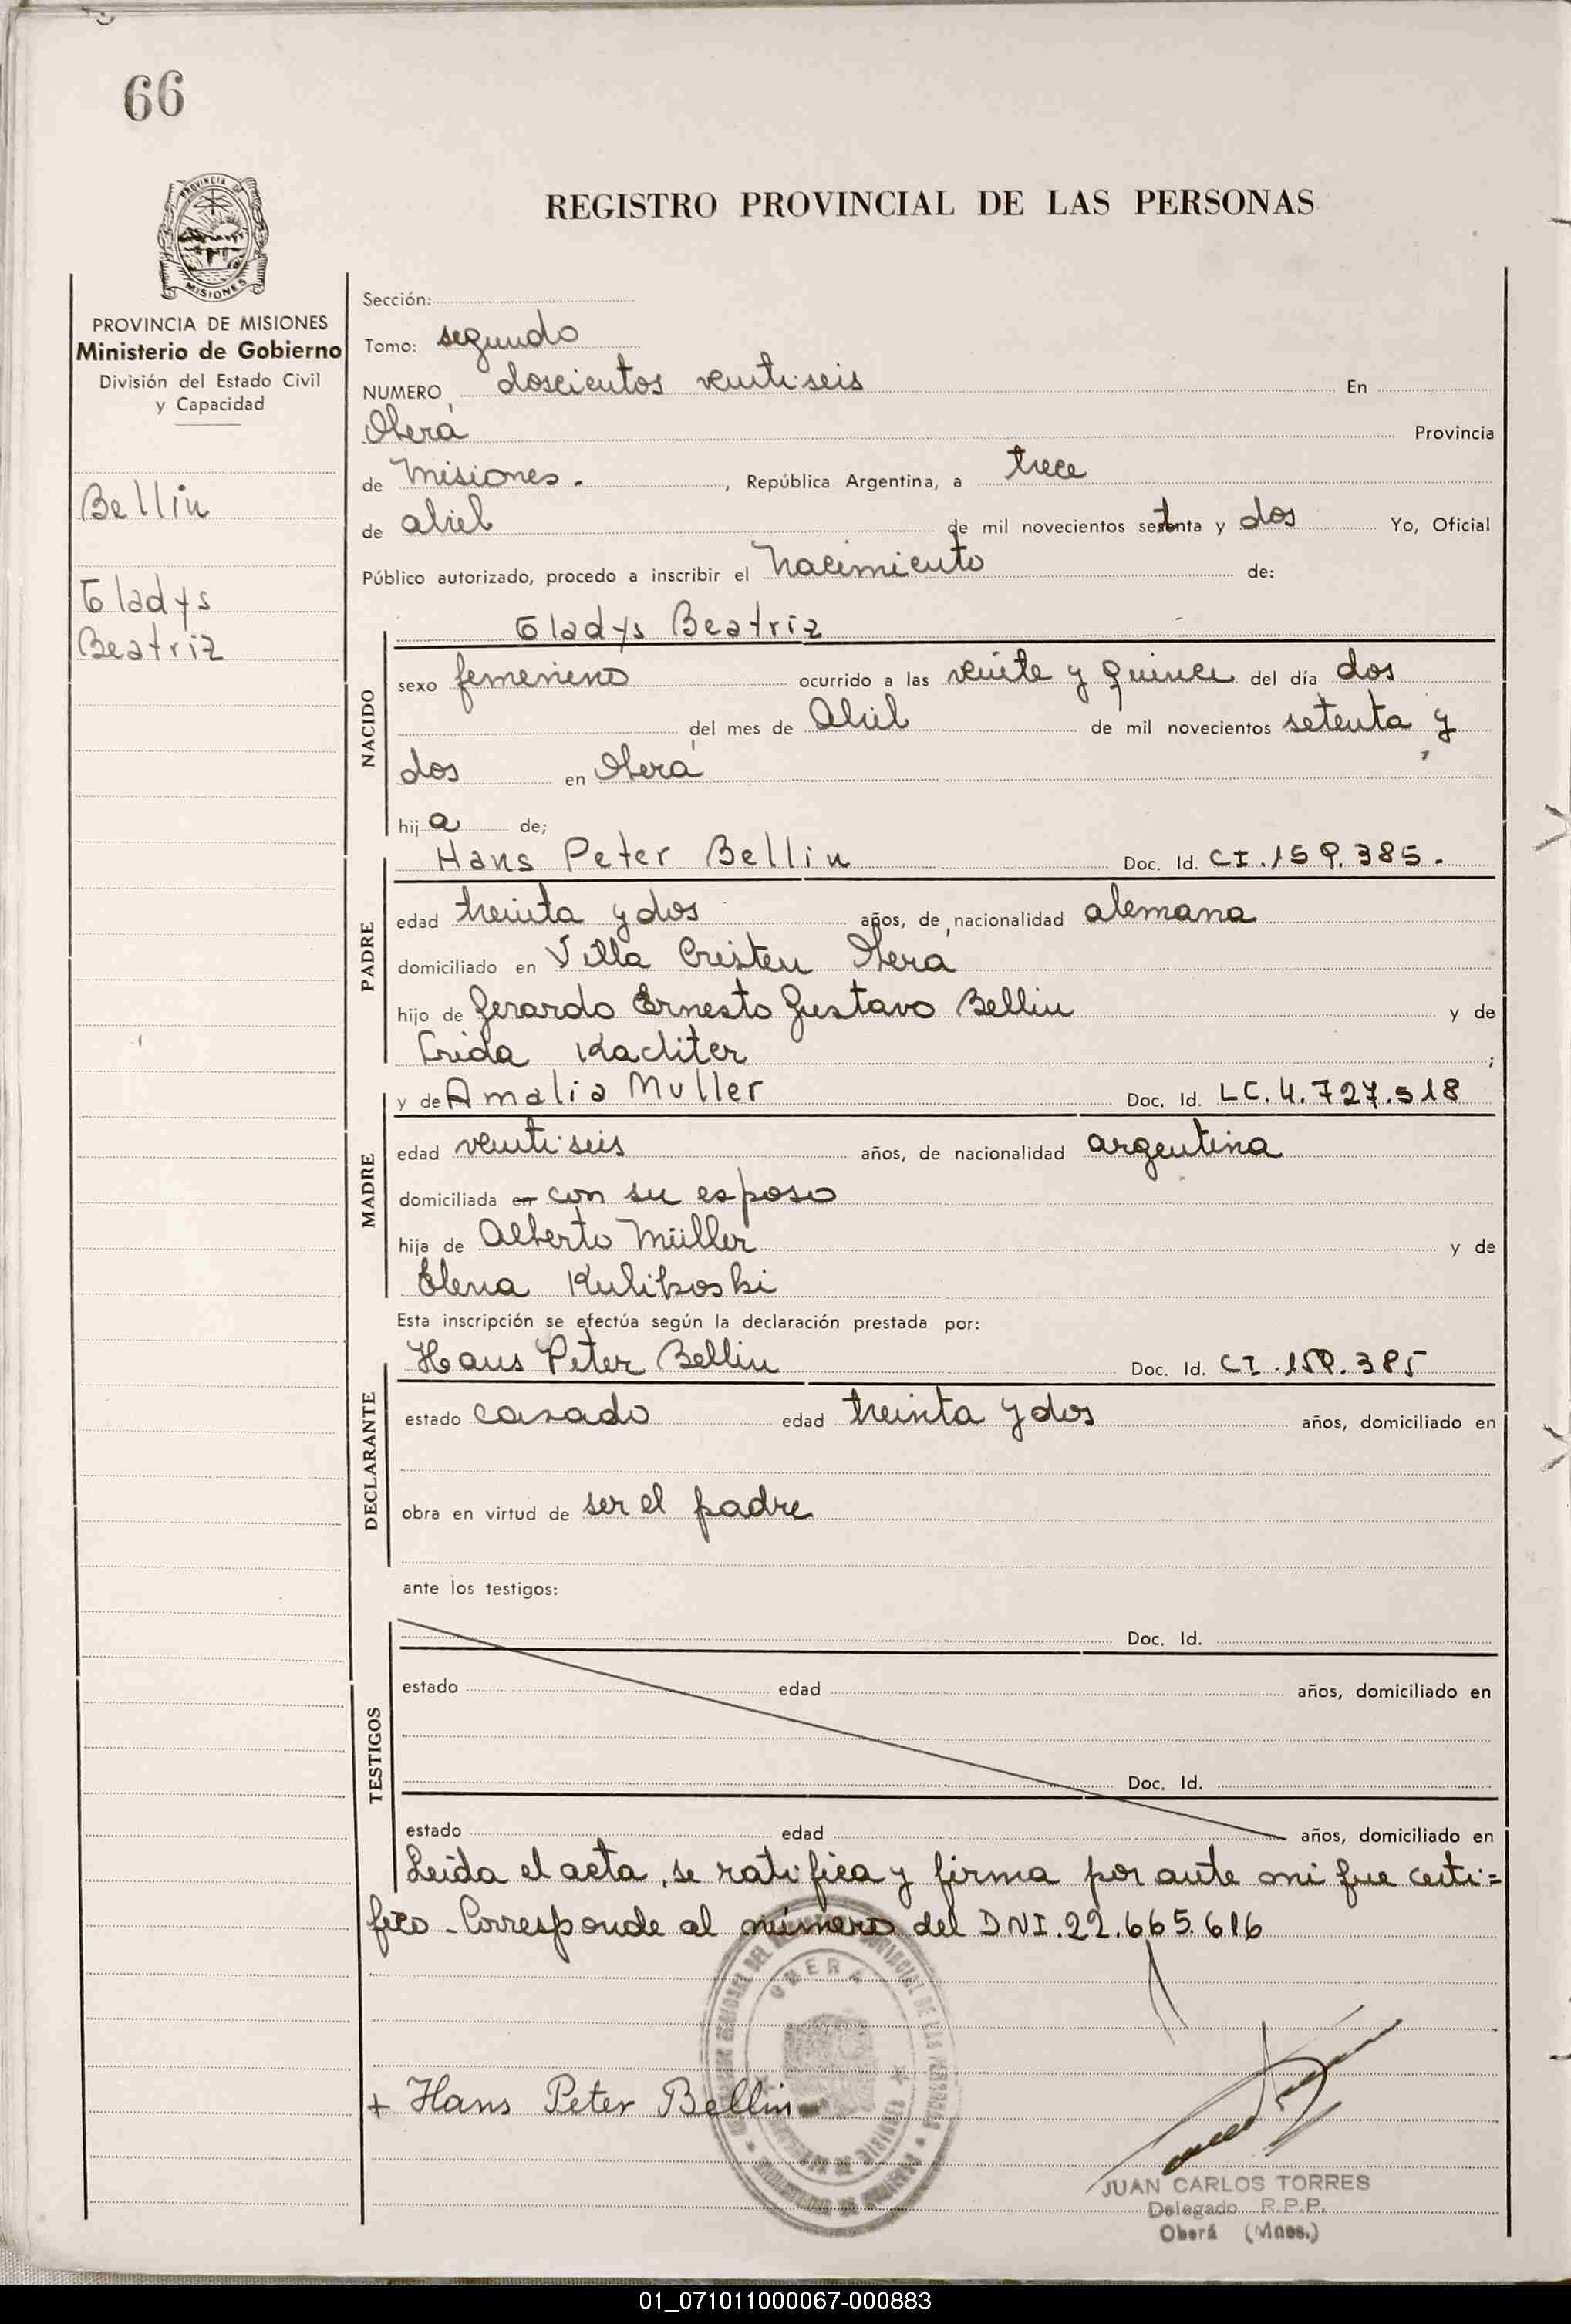 66
PROVINCIA DE
MISIONES
REGISTRO PROVINCIAL DE LAS PERSONAS
PROVINCIA DE MISIONES
Ministerio de Gobierno
División del Estado Civil
y Capacidad
Bellin
Gladys
Beatriz
Sección:
Tomo: segundo
NUMERO doscientos veinti-seis En
Oberá Provincia
de Misiones. , República Argentina, a trece
de abril de mil novecientos setenta y dos Yo, Oficial
Público autorizado, procedo a inscribir el Nacimiento de:
NACIDO
Gladys Beatriz
sexo femenino ocurrido a las veinte y quince del día dos
del mes de Abril de mil novecientos setenta y
dos en Oberá
hija de;
PADRE
Hans Peter Bellin Doc. Id. CI.159.385.
edad treinta y dos años, de nacionalidad alemana
domiciliado en Villa Cristen Oberá
hijo de Gerardo Ernesto Gustavo Bellin y de
Frida ;
MADRE
y de Amalia Muller Doc. Id. LC.4.727.518
edad veinti-seis años, de nacionalidad argentina
domiciliada en con su esposo
hija de Alberto Müller y de
Elena Kulikoski
Esta inscripción se efectúa según la declaración prestada por:
DECLARANTE
Hans Peter Bellin Doc. Id. CI.159.385
estado casado edad treinta y dos años, domiciliado en
obra en virtud de ser el padre
ante los testigos:
TESTIGOS
Doc. Id.
estado edad años, domiciliado en
Doc. Id.
estado edad años, domiciliado en
Leida el acta, se ratifica y firma por ante mi fue certi=
fico - Corresponde al número del DNI.22.665.616
OBERA
+ Hans Peter Bellin
JUAN CARLOS TORRES
Delegado R.P.P.
Oberá (Mnes.)
01_071011000067-000883